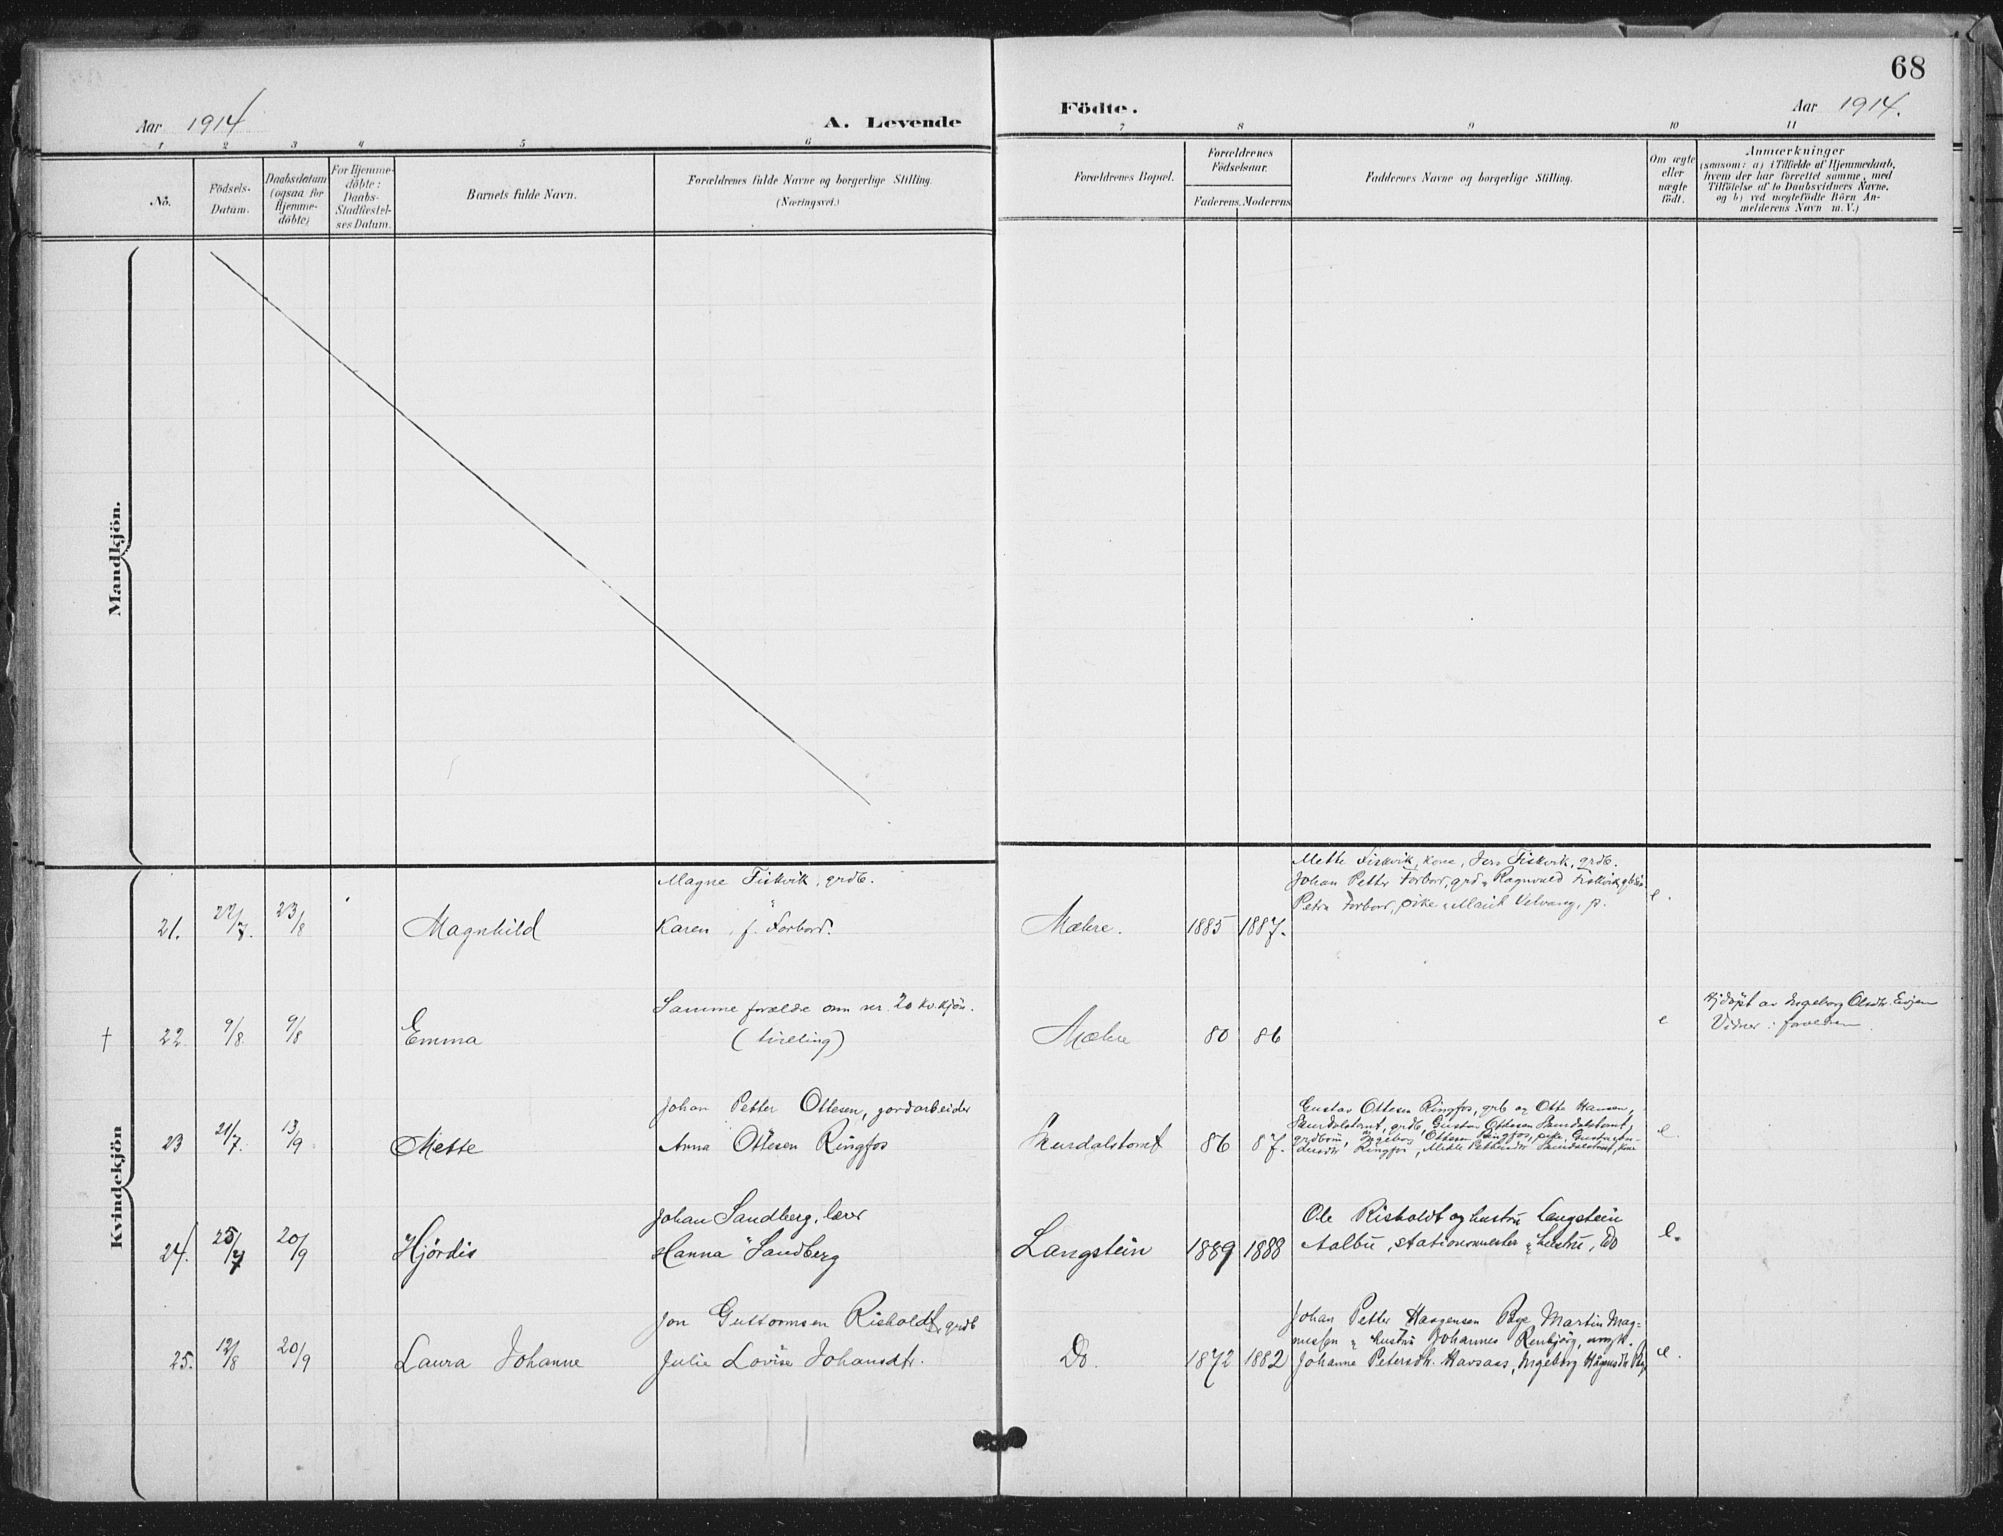 68
Aar 1914
A. Levende
Födte.
Aar 1914.
1 2 3 4 5 6 7 8 9 10 11
No.
Födsels-
Datum.
Daabsdatum
(ogsaa for
Hjemme-
döbte)
For Hjemme-
döbte:
Daabs-
Stadfæstel-
ses Datum.
Barnets fulde Navn.
Forældrenes fulde Navne og borgerlige Stilling.
(Næringsvei.)
Forældrenes Bopæl.
Forældrenes
Födselsaar.
Faderens. Moderens.
Faddernes Navne og borgerlige Stilling.
Om ægte
eller
uægte
födt.
Anmærkninger
(saasom: a) i Tilfælde af Hjemmedaab,
hvem der har forrettet samme, med
Tilföielse af to Daabsvidners Navne,
og b) ved uægtefödte Börn An-
melderens Navn m. V.)
Mandkjön.
Kvindekjön
21. 22/7. 23/8 Magnhild
Magne Fiskvik, grdb.
Karen f. Forbord.
Mæhre. 1885 1887.
Mette Fiskvik, kone, Jens Fiskvik, grdb.
Johan Petter Forbord, Ragnvald Fiskvik,
Petra Forbord, pike, Marit Velvang, p.
e.
† 22 9/8 9/8 Emma
Samme forældre som nr. 20 kv.kjön.
(tvilling)
Mæhre 80 86
e
Hjdöpt av Ingeborg Olsdtr. Evjem
Vidner: forældren
23 21/7. 13/9 Mette
Johan Petter Ottesen, gordarbeider
Anna Ottesen Ringfos
86 87.
Gustav Ottesen Ringfos, grb og Otte Hansen,
grdb, Gustav Ottesen
Ingeborg Ottesen Ringfos, pike,
Ringfos, Mette kone
e.
24. 25/7 20/9 Hjördis
Johan Sandberg, lærer
Hanna " Sandberg
Langstein 1889 1888
Ole Risholdt og hustru Langstein
Aalbu, stationsmester " hustru, Do
e.
25. 12/8 20/9 Laura Johanne
Jon Guttormsen Risholdt, grdb
Julie Lovise Johansdt.
Do. 1872 1882
Johan Petter Haagensen Martin Mag-
nussen " hustru Johannes Renbjörg, ungk.
Johanne Petersdtr. Havsaas, Ingeborg
e.